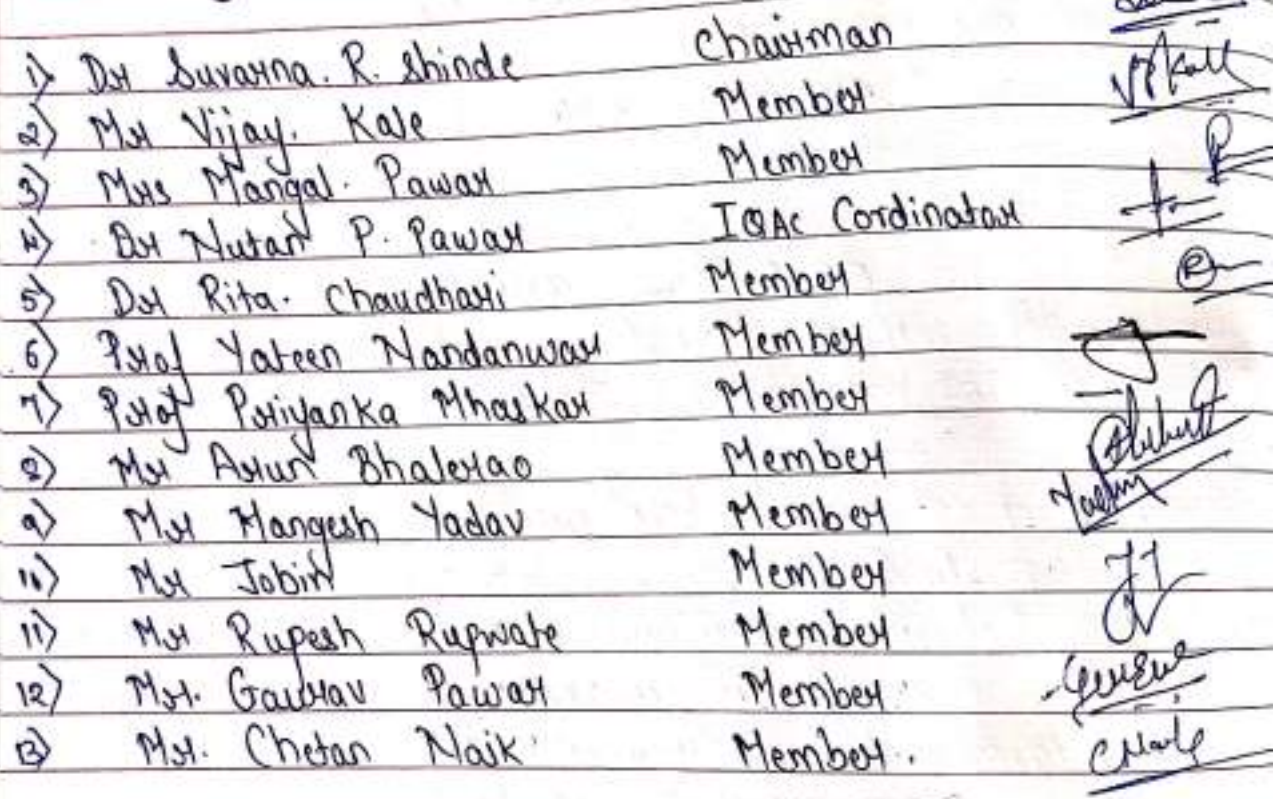 1) Dr Suvarna. R. Shinde Chairman
2) Mr Vijay. Kale Member
3) Mrs Mangal. Pawar Member
4) Dr Nutan P. Pawar IQAC Cordinator
5) Dr Rita. Chaudhari Member
6) Prof Yateen Nandanwar Member
7) Prof Priyanka Mhaskar Member
8) Mr Arun Bhalerao Member
9) Mr Mangesh Yadav Member
10) Mr Jobin Member
11) Mr Rupesh Rupwate Member
12) Mr. Gaurav Pawar Member
13) Mr. Chetan Naik Member.